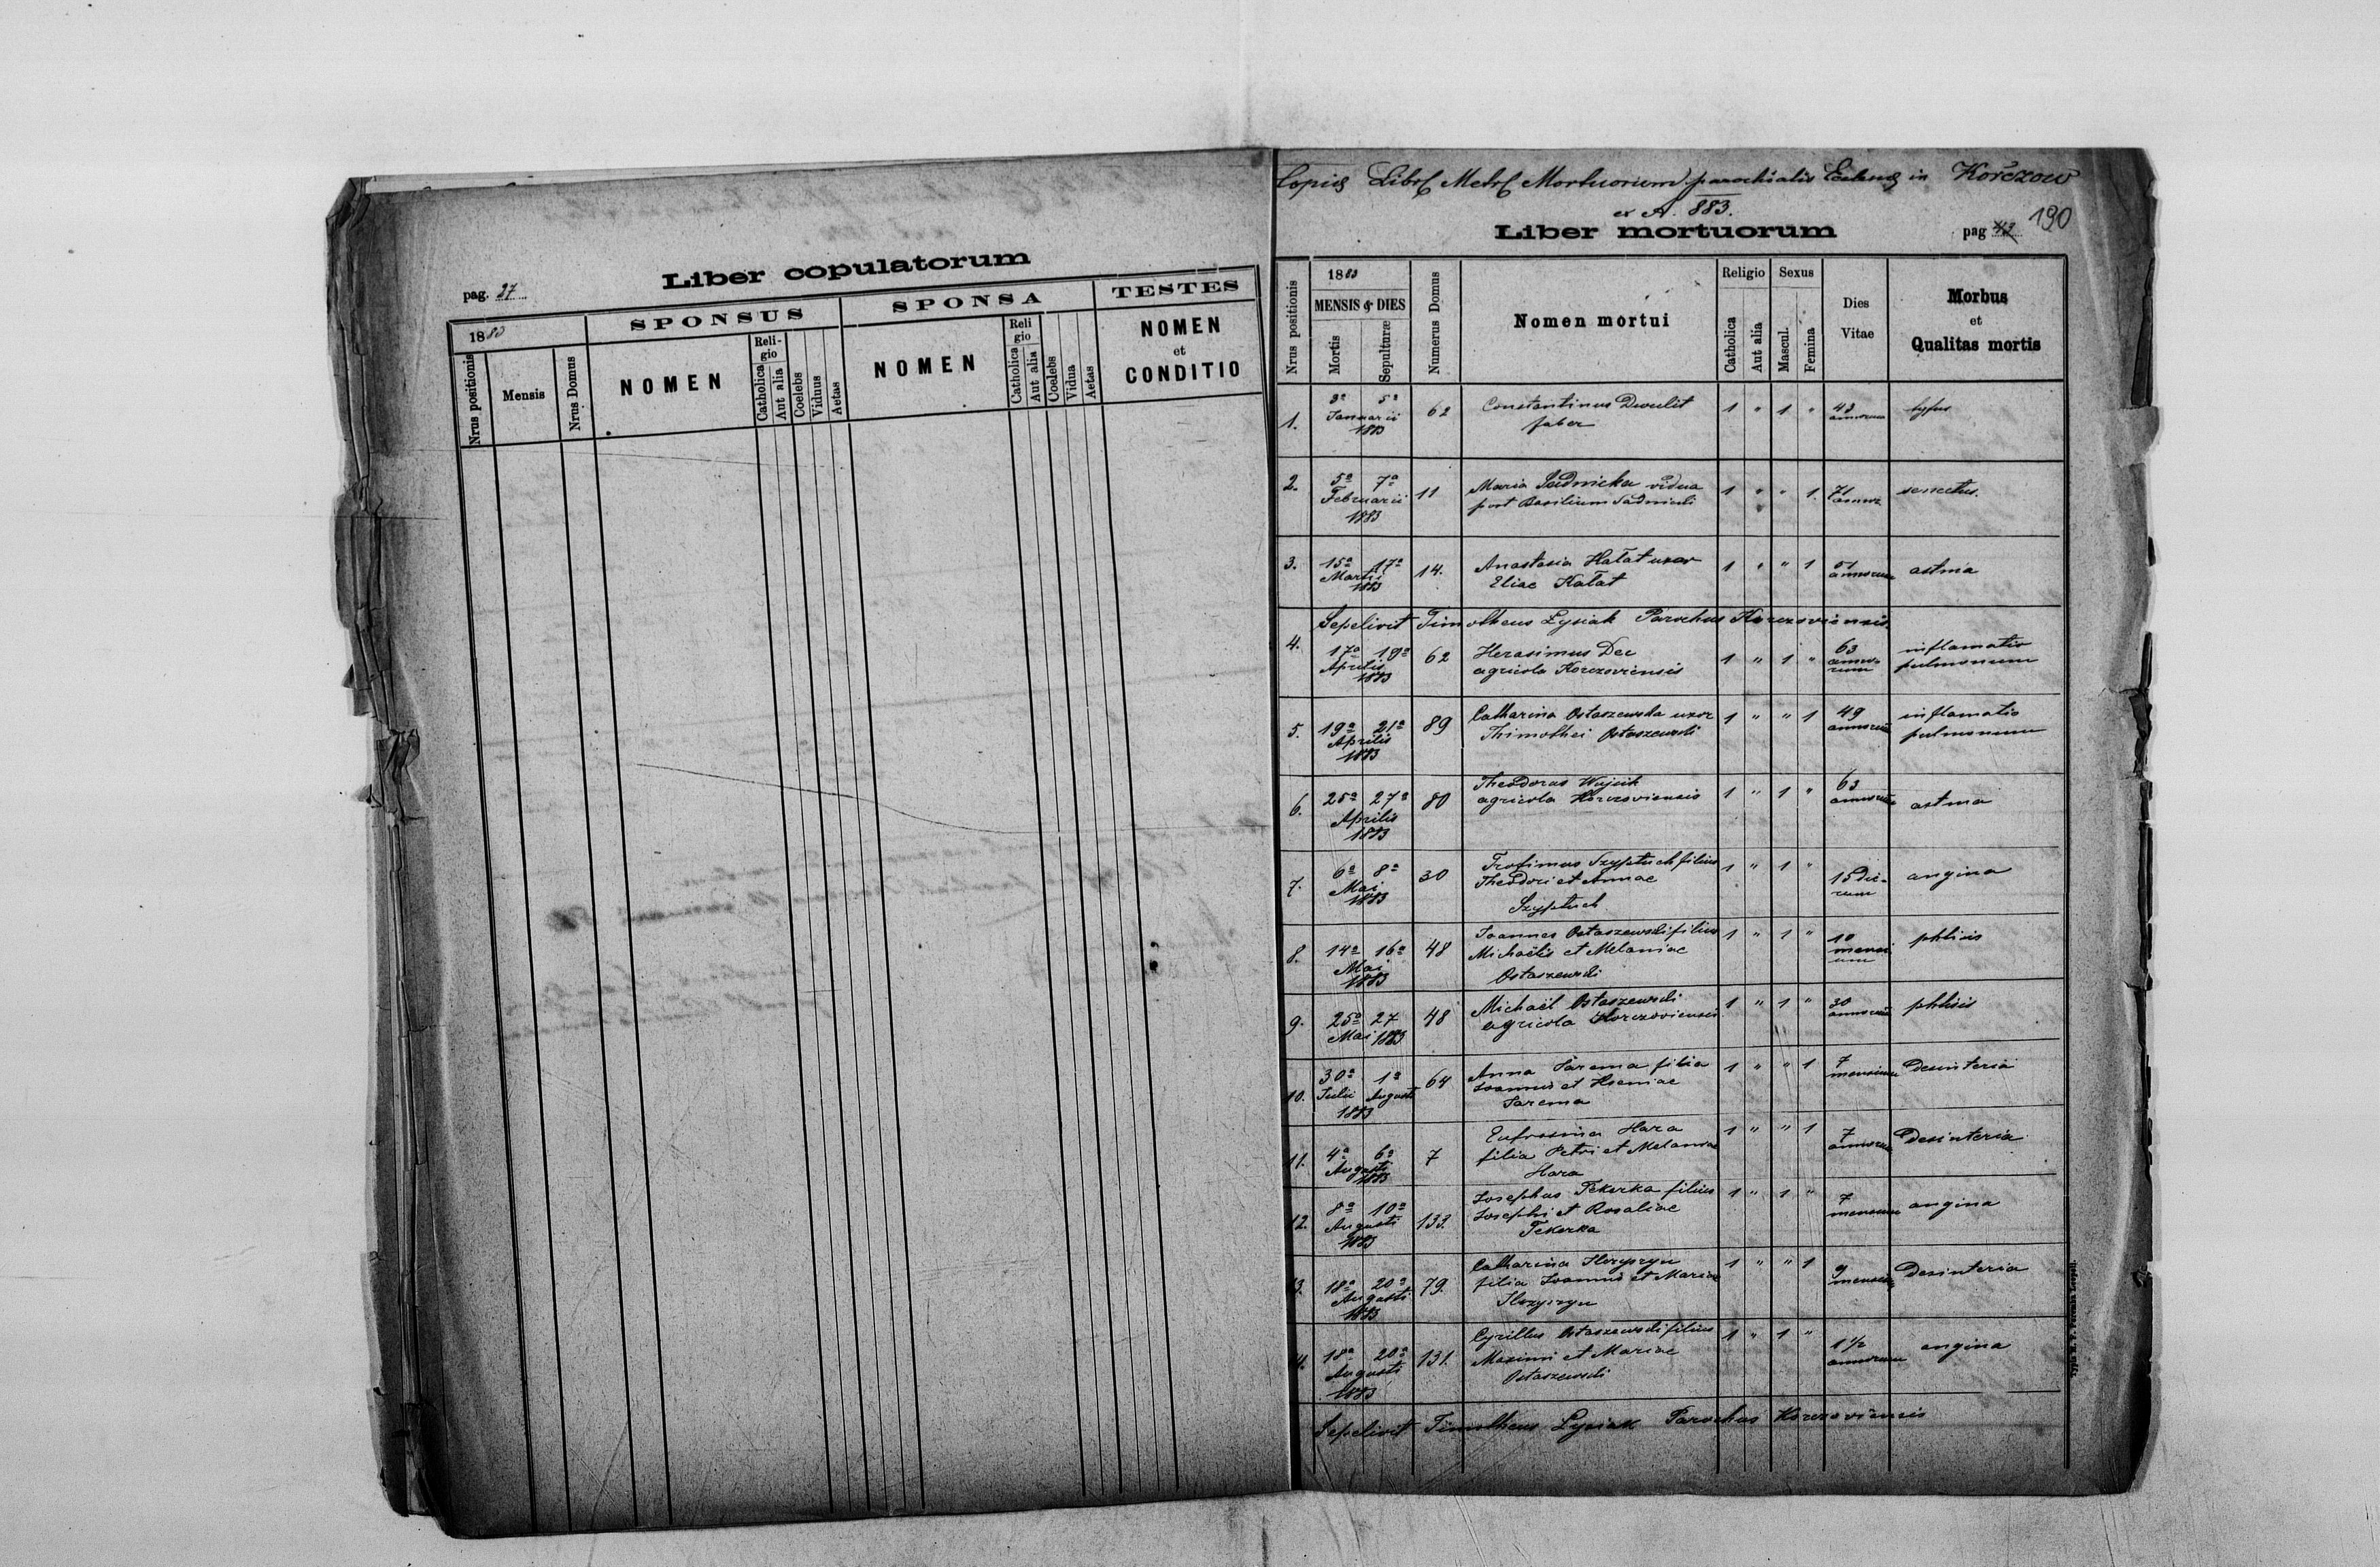 Liber copulatorum
pag. 27
1883
SPONSUS
SPONSA
TESTES
Nrus positionis
Mensis
Nrus Domus
NOMEN
Religio
Catholica
Aut alia
Coelebs
Viduus
Aetas
NOMEN
Religio
Catholica
Aut alia
Coelebs
Vidua
Aetas
NOMEN
et
CONDITIO
Libr Metr Mortuorum parochialis in Korczow
ex A. 883.
Liber mortuorum
pag 190
Nrus positionis
1883
MENSIS & DIES
Mortis
Sepulturæ
Numerus Domus
Nomen mortui
Religio
Catholica
Aut alia
Sexus
Mascul.
Femina
Dies
Vitae
Morbus
et
Qualitas mortis
1. 3a 5a Januarii 1883 62 Constantinus 1 " 1 " annorum tyfus
faber
2. 5a 7a Februarii 1883 11 Maria Sadnicka vidua 1 " " 1 71 senectus.
post Basilium Sadnicki
3. 15a 17a Martii 1883 14. Anastasia Hałat uxor 1 " " 1 51 annorum astma
Eliae Hałat
Sepelivit Timotheus Lysiak Parochus Korczoviensis.
4. 17a 19a Aprilis 1883 62 Herasimus Dec 1 " 1 " 63 annorum inflamatio
agricola Korczoviensis pulmonum
5. 19a 21a Aprilis 1883 89 Catharina Ostaszewska uxor 1 " " 1 49 annorum inflamatio
Thimothei Ostaszewski pulmonum
6. 25a 27a Aprilis 1883 80 Theodorus Wujcik 1 " 1 " 63 annorum astma
agricola Korczoviensis
7. 6a 8a Mai 1883 30 Trofimus Szyptuch filius 1 " 1 " 15 dierum angina
Theodori et Annae
Szyptuch
8. 14a 16a Mai 1883 48 Joannes Ostaszewski filius 1 " 1 " 10 mensium phtisis
Michaelis et Melaniae
Ostaszewski
9. 25a 27 Mai 1883 48 Michaël Ostaszewski 1 " 1 " 30 annorum phtisis
agricola Korczoviensis
10. 30a Julii 1a Augusti 1883 64 Anna Jarema filia 1 " " 1 7 mensium Desinteria
Joannis et Kseniae
Jarema
11. 4a 6a Augusti 1883 7 Eufrosina Hara 1 " " 1 7 annorum Desinteria
filia Petri et Melaniae
Hara
12. 8a 10a Augusti 1883 133. Josephus Tekerka filius 1 " 1 " 7 mensium angina
Josephi et Rosaliae
Tekerka
13. 18a 20a Augusti 1883 79. Catharina 1 " " 1 9 mensium Desinteria
filia Joannis et Mariae
14. 18a 20a Augusti 1883 131. Cyrillus Ostaszewski filius 1 " 1 " 1 1/2 annorum angina
Maximi et Mariae
Ostaszewski
Sepelivit Timotheus Lysiak Parochus Korczoviensis